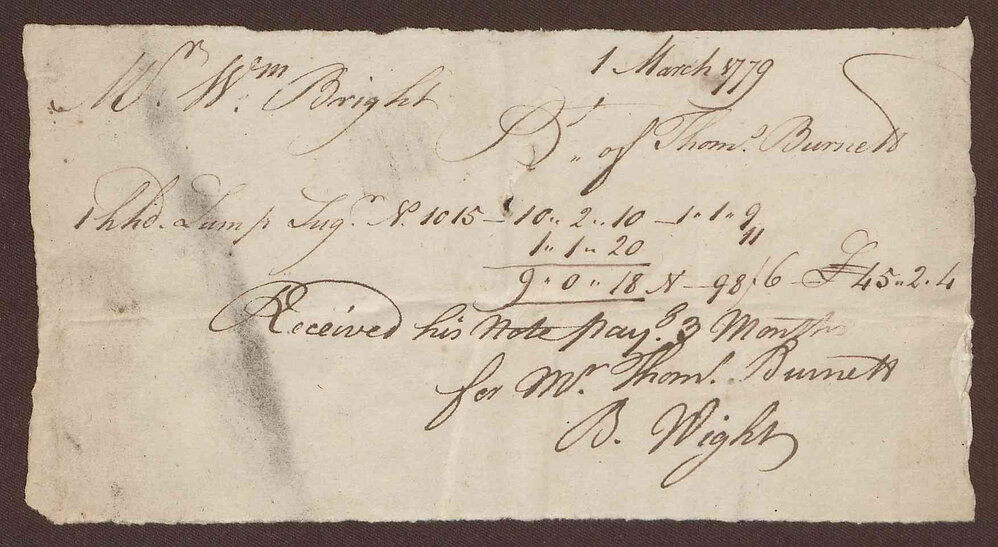 1 March 1779
Mr. Wm. Bright
Bt. of Thoms. Burnett
1 hhd. Lump Sugr. No. 1015 — 10 .. 2 .. 10 — 1 " 1 " 9
1 " 1 " 20 11
9 " 0 " 18 N — 98/6 — £45 .. 2 . 4
Received his Note paye. 3 Months
for Mr. Thoms. Burnett
B. Wight